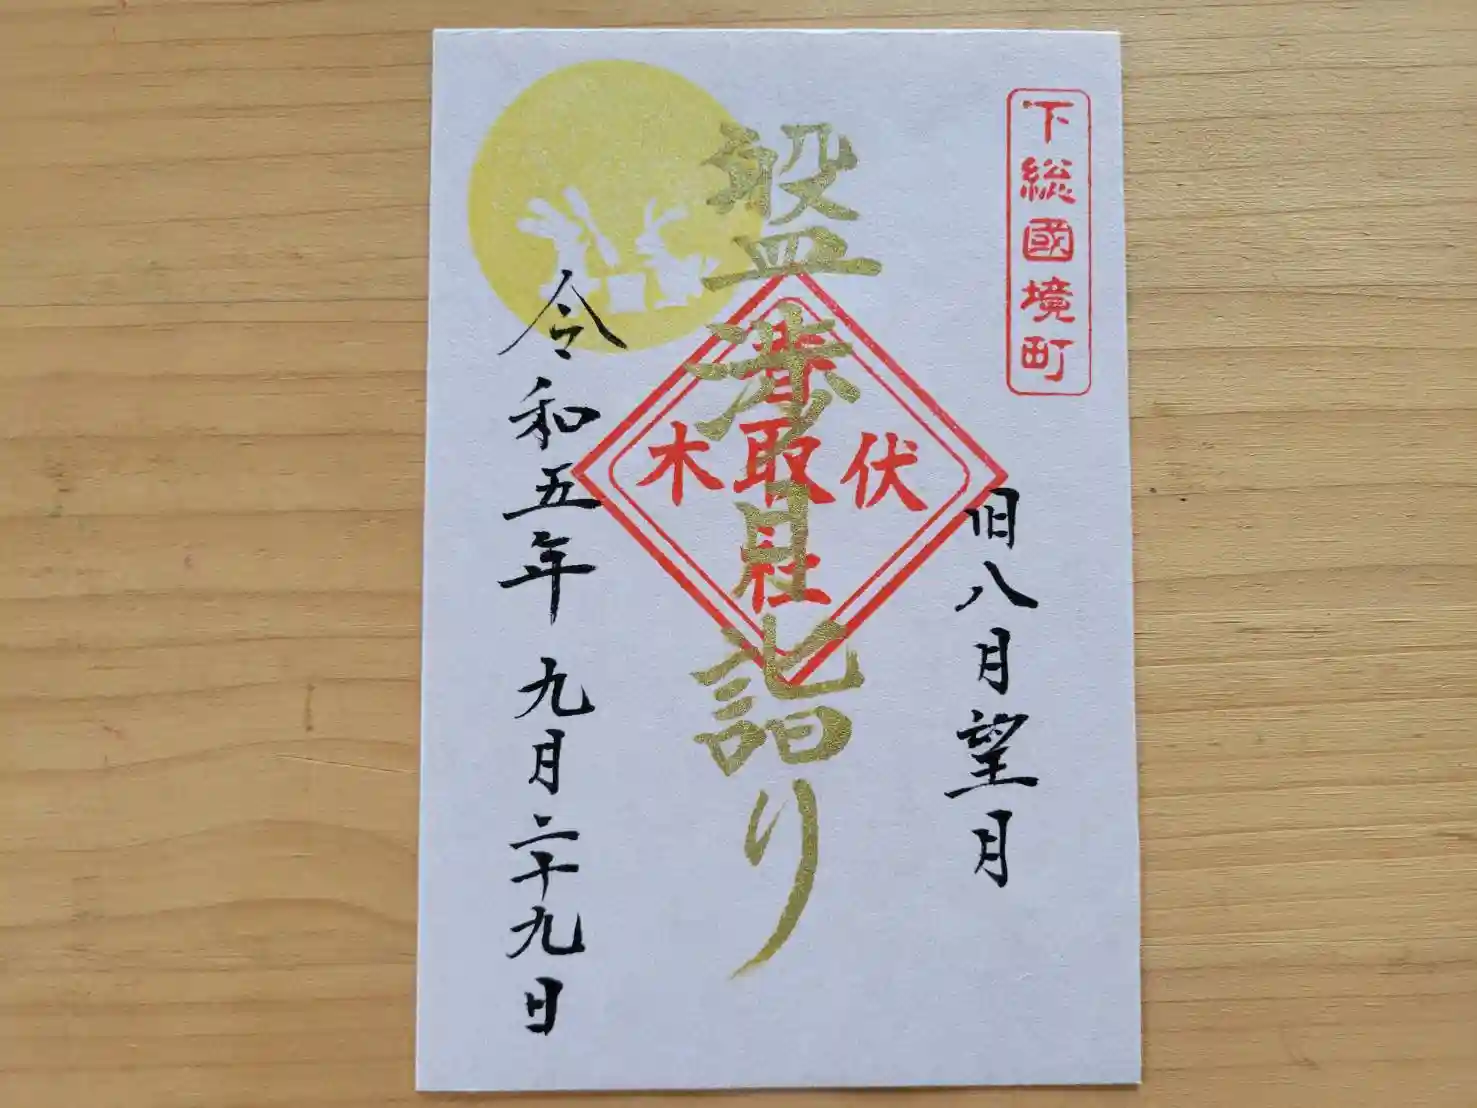 下総國境町
旧八月望月
盤渉月詣り
伏木
香取社
令和五年九月二十九日